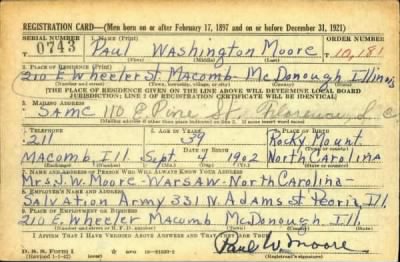 REGISTRATION CARD—(Men born on or after February 17, 1897 and on or before December 31, 1921)
SERIAL NUMBER 1. NAME (Print) ORDER NUMBER
0743 Paul Washington Moore T 10,181
(First) (Middle) (Last)
2. PLACE OF RESIDENCE (Print)
210 E Wheeler St. Macomb McDonough Illinois
(Number and street) (Town) (County) (State)
[THE PLACE OF RESIDENCE GIVEN ON THE LINE ABOVE WILL DETERMINE LOCAL BOARD
JURISDICTION; LINE 2 OF REGISTRATION CERTIFICATE WILL BE IDENTICAL]
3. MAILING ADDRESS
Same 110 E Pine St.
[Mailing address if other than place indicated on line 2. If same insert word same]
4. TELEPHONE 5. AGE IN YEARS 6. PLACE OF BIRTH
211 39 Rocky Mount
DATE OF BIRTH
Macomb, Ill. Sept. 4 1902 North Carolina
(Exchange) (Number) (Mo.) (Day) (Yr.) (State or country)
7. NAME AND ADDRESS OF PERSON WHO WILL ALWAYS KNOW YOUR ADDRESS
Mrs. J. W. Moore - Warsaw - North Carolina -
8. EMPLOYER'S NAME AND ADDRESS
Salvation Army 331 N. Adams St Peoria, Ill.
9. PLACE OF EMPLOYMENT OR BUSINESS
210 E. Wheeler Macomb McDonough Ill.
(Number and street or R. F. D. number) (Town) (County) (State)
I AFFIRM THAT I HAVE VERIFIED ABOVE ANSWERS AND THAT THEY ARE TRUE.
D. S. S. Form 1
(Revised 1-1-42) (over) Paul W. Moore